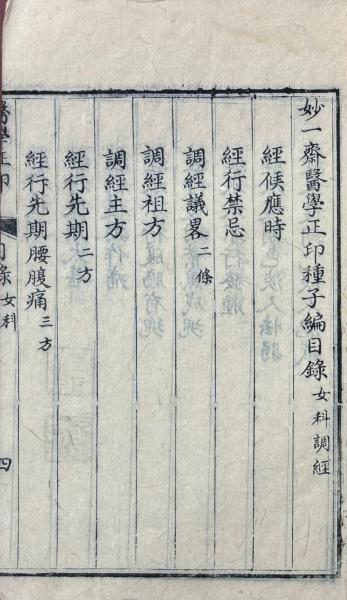 妙一齋醫學正印種子編目錄 女科調經
經候應時
經行禁忌
調經議畧 二條
調經祖方
調經主方
經行先期 二方
經行先期腰腹痛 三方
醫學正印
目錄 女科
四